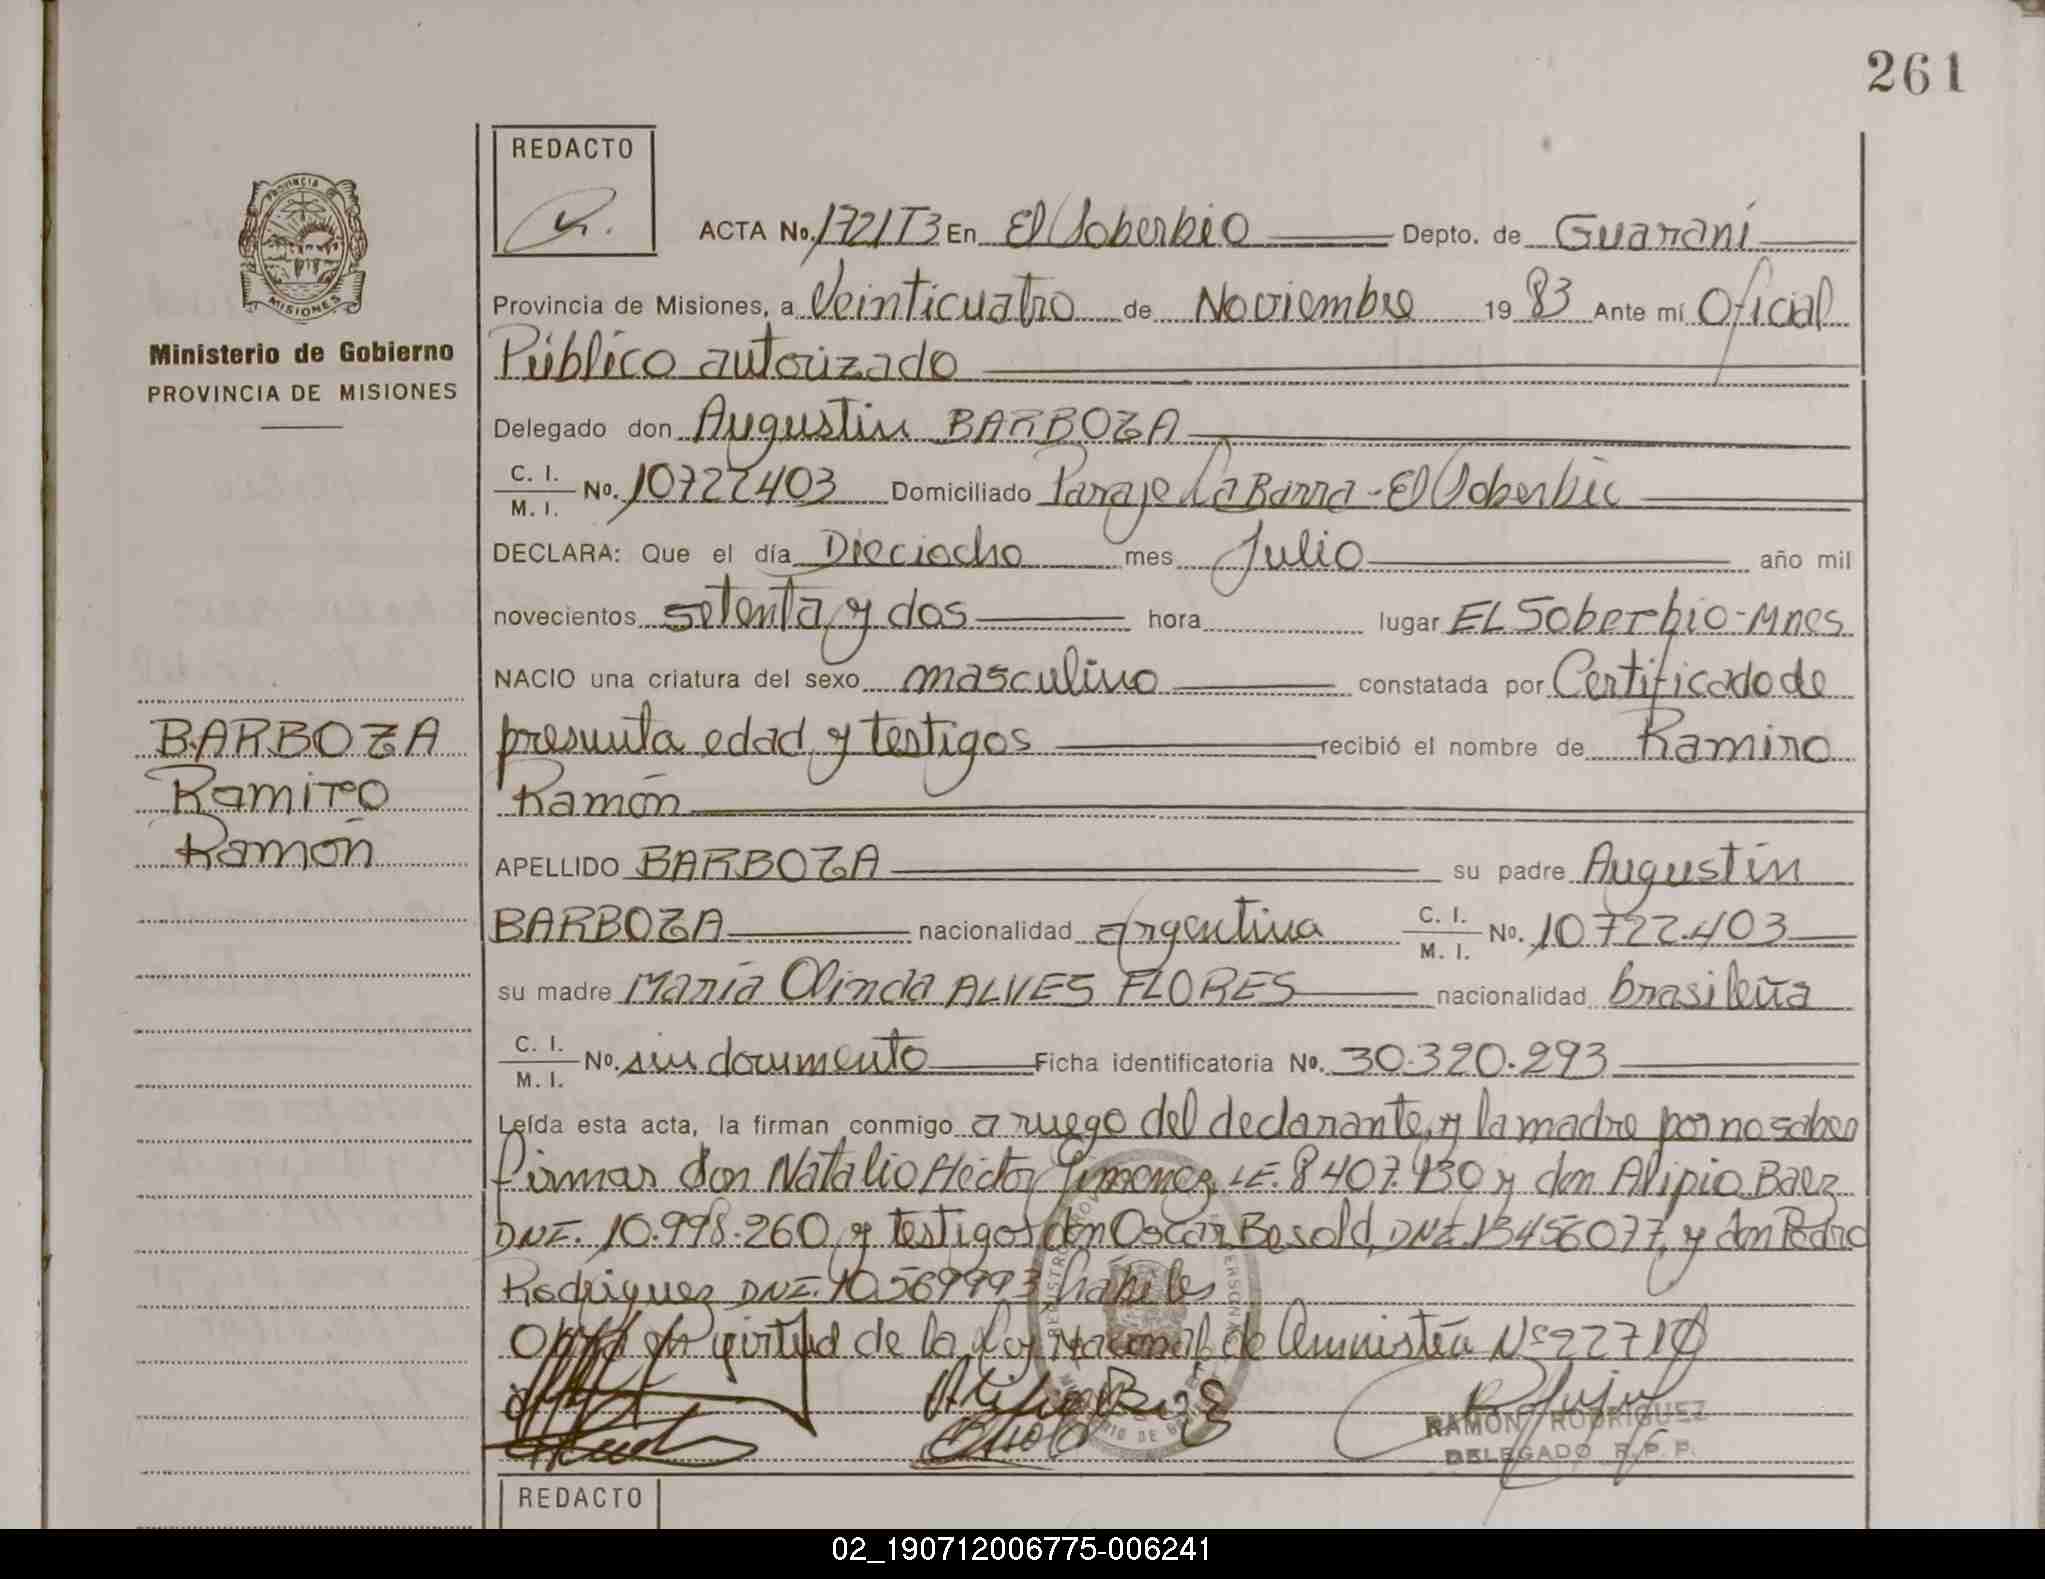 261
REDACTO
PROVINCIA DE
MISIONES
Ministerio de Gobierno
PROVINCIA DE MISIONES
ACTA No. 1721T3 En El Soberbio Depto. de Guaraní
Provincia de Misiones, a Veinticuatro de Noviembre 1983 Ante mí Oficial
Público autorizado
Delegado don Augustin BARBOZA
C. I. / M. I. No. 10722403 Domiciliado Paraje La Barra - El Soberbio
DECLARA: Que el día Dieciocho mes Julio año mil
novecientos setenta y dos hora lugar EL Soberbio-Mnes
NACIO una criatura del sexo masculino constatada por Certificado de
presunta edad y testigos recibió el nombre de Ramiro
Ramón
BARBOZA
Ramiro
Ramón
APELLIDO BARBOZA su padre Augustin
BARBOZA nacionalidad argentina C. I. / M. I. No. 10722.403
su madre María Olinda ALVES FLORES nacionalidad brasileña
C. I. / M. I. No. sin documento Ficha identificatoria No. 30.320.293
Leída esta acta, la firman conmigo a ruego del declarante, y la madre por no saber
firmar don Natalio Héctor Gimenez LE. 8407.130 y don Alipio Baez
DNI. 10.998.260 y testigos don Oscar Besold DNI. 13456077, y don Pedro
Rodriguez DNI. 10569993 habiles
en virtud de la Ley Nacional de Amnistía Nº 22710
RAMON RODRIGUEZ
DELEGADO R. P. P.
REDACTO
02_190712006775-006241